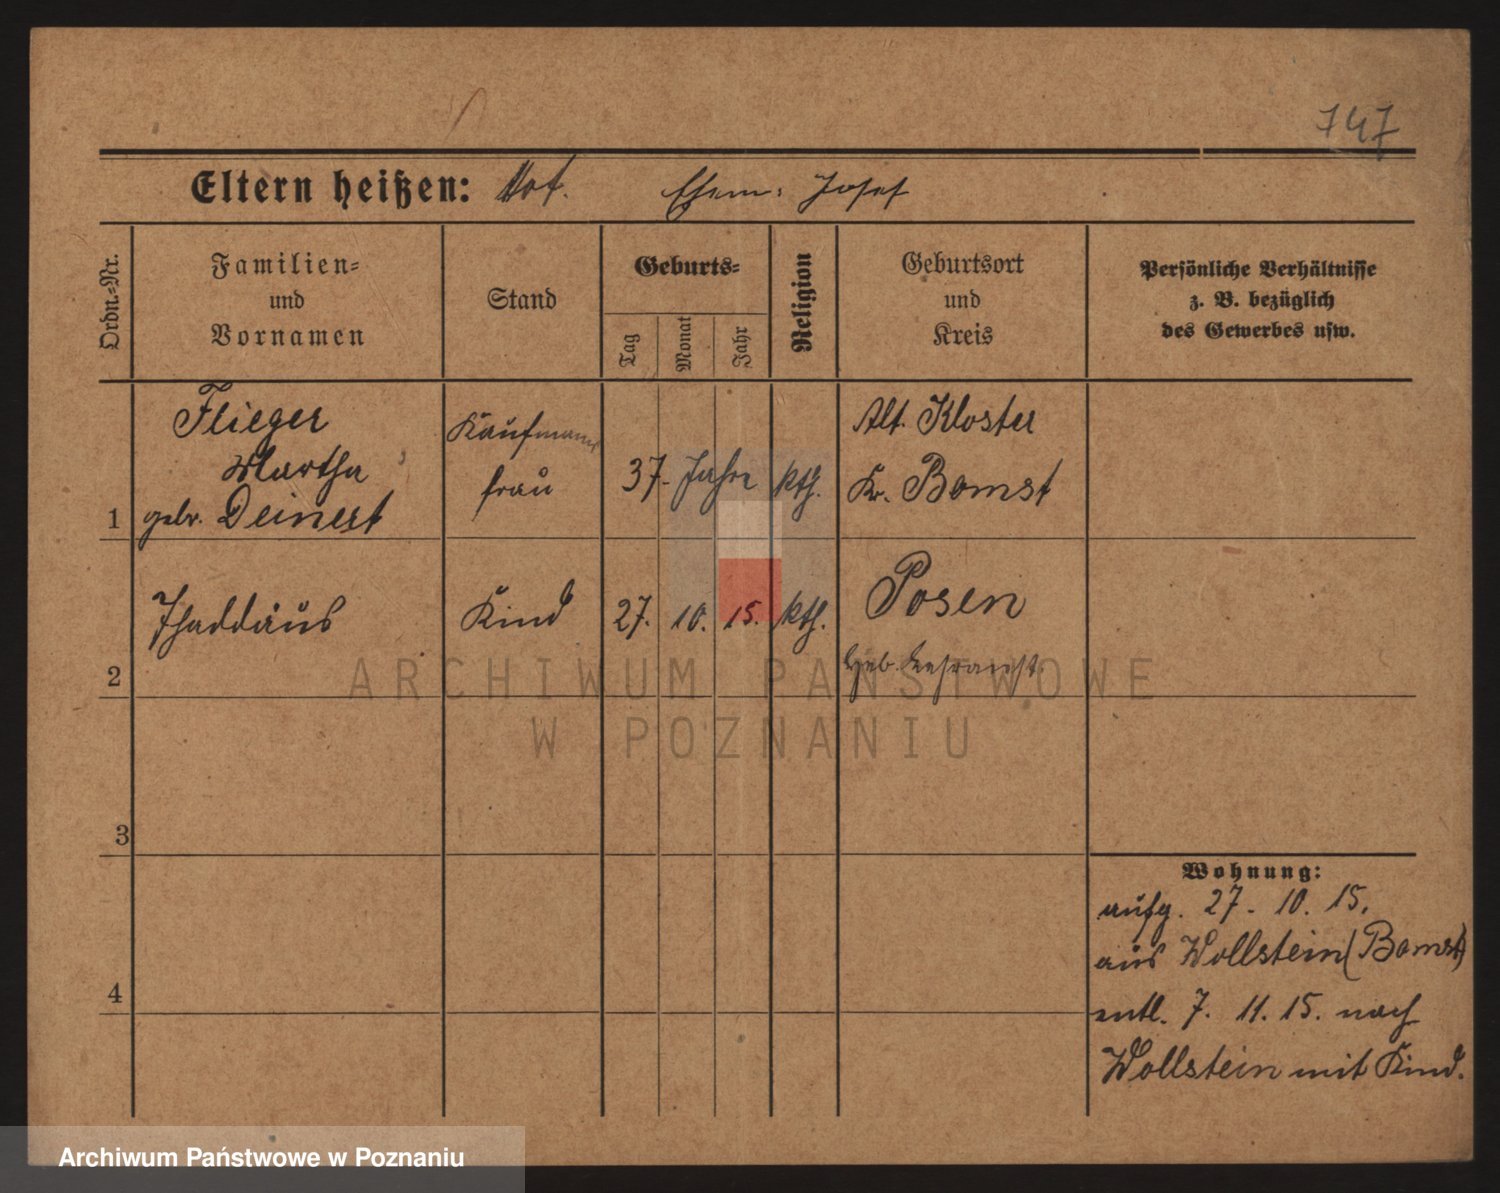 747
Eltern heißen: Ehem: Josef
Ordn.-Nr.
Familien-
und
Vornamen
Stand
Geburts-
Tag
Monat
Jahr
Religion
Geburtsort
und
Kreis
Persönliche Verhältnisse
z. B. bezüglich
des Gewerbes usw.
1
Flieger
Martha
geb. Deinert
Kaufmann
frau
37. Jahre
kth.
Alt. Kloster
Kr. Bomst
2
Thaddäus
Kind
27. 10. 15.
kth.
Posen
Heb.
3
4
Wohnung:
aufg. 27. 10. 15.
aus Wollstein (Bomst)
entl. 7. 11. 15. nach
Wollstein mit Kind.
ARCHIWUM PAŃSTWOWE
W POZNANIU
Archiwum Państwowe w Poznaniu